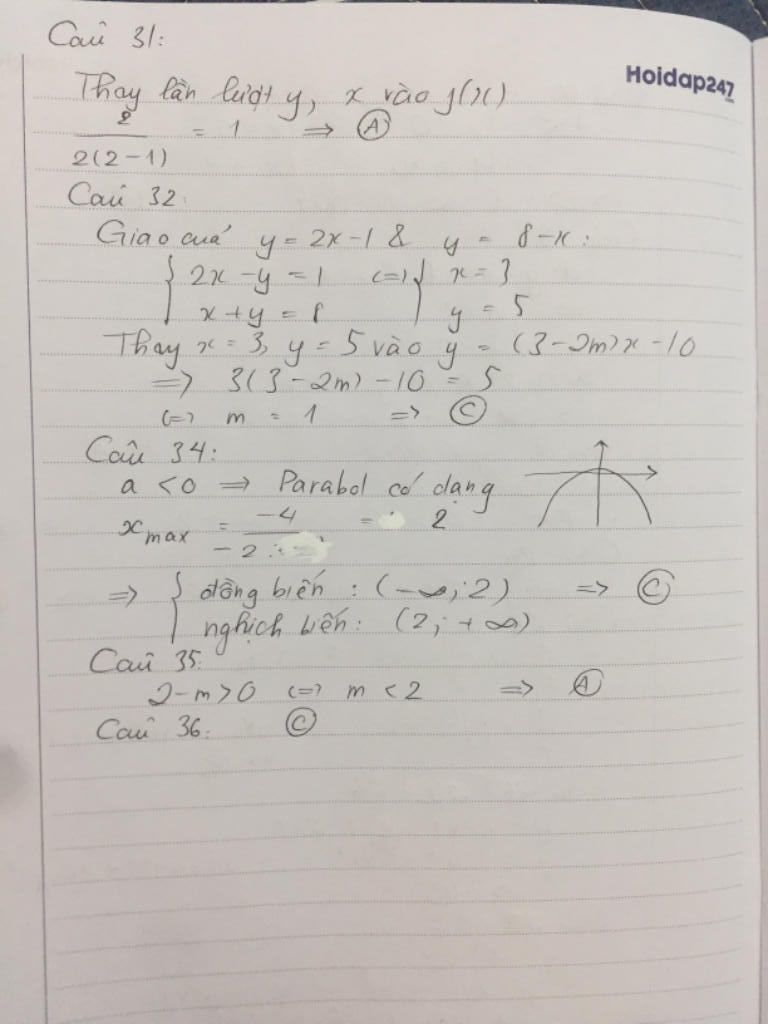 Câu 31:
Hoidap247
Thay lần lượt y, x vào f(x)
2 / 2(2-1) = 1 => (A)
Câu 32:
Giao của y = 2x-1 & y = 8-x:
{ 2x - y = 1 <=> { x = 3
x + y = 8 y = 5
Thay x = 3, y = 5 vào y = (3-2m)x - 10
=> 3(3-2m) - 10 = 5
<=> m = 1 => (C)
Câu 34:
a < 0 => Parabol có dạng
x max = -4 / -2 = 2
=> { đồng biến : (-∞; 2) => (C)
nghịch biến: (2; +∞)
Câu 35:
2-m > 0 <=> m < 2 => (A)
Câu 36: (C)